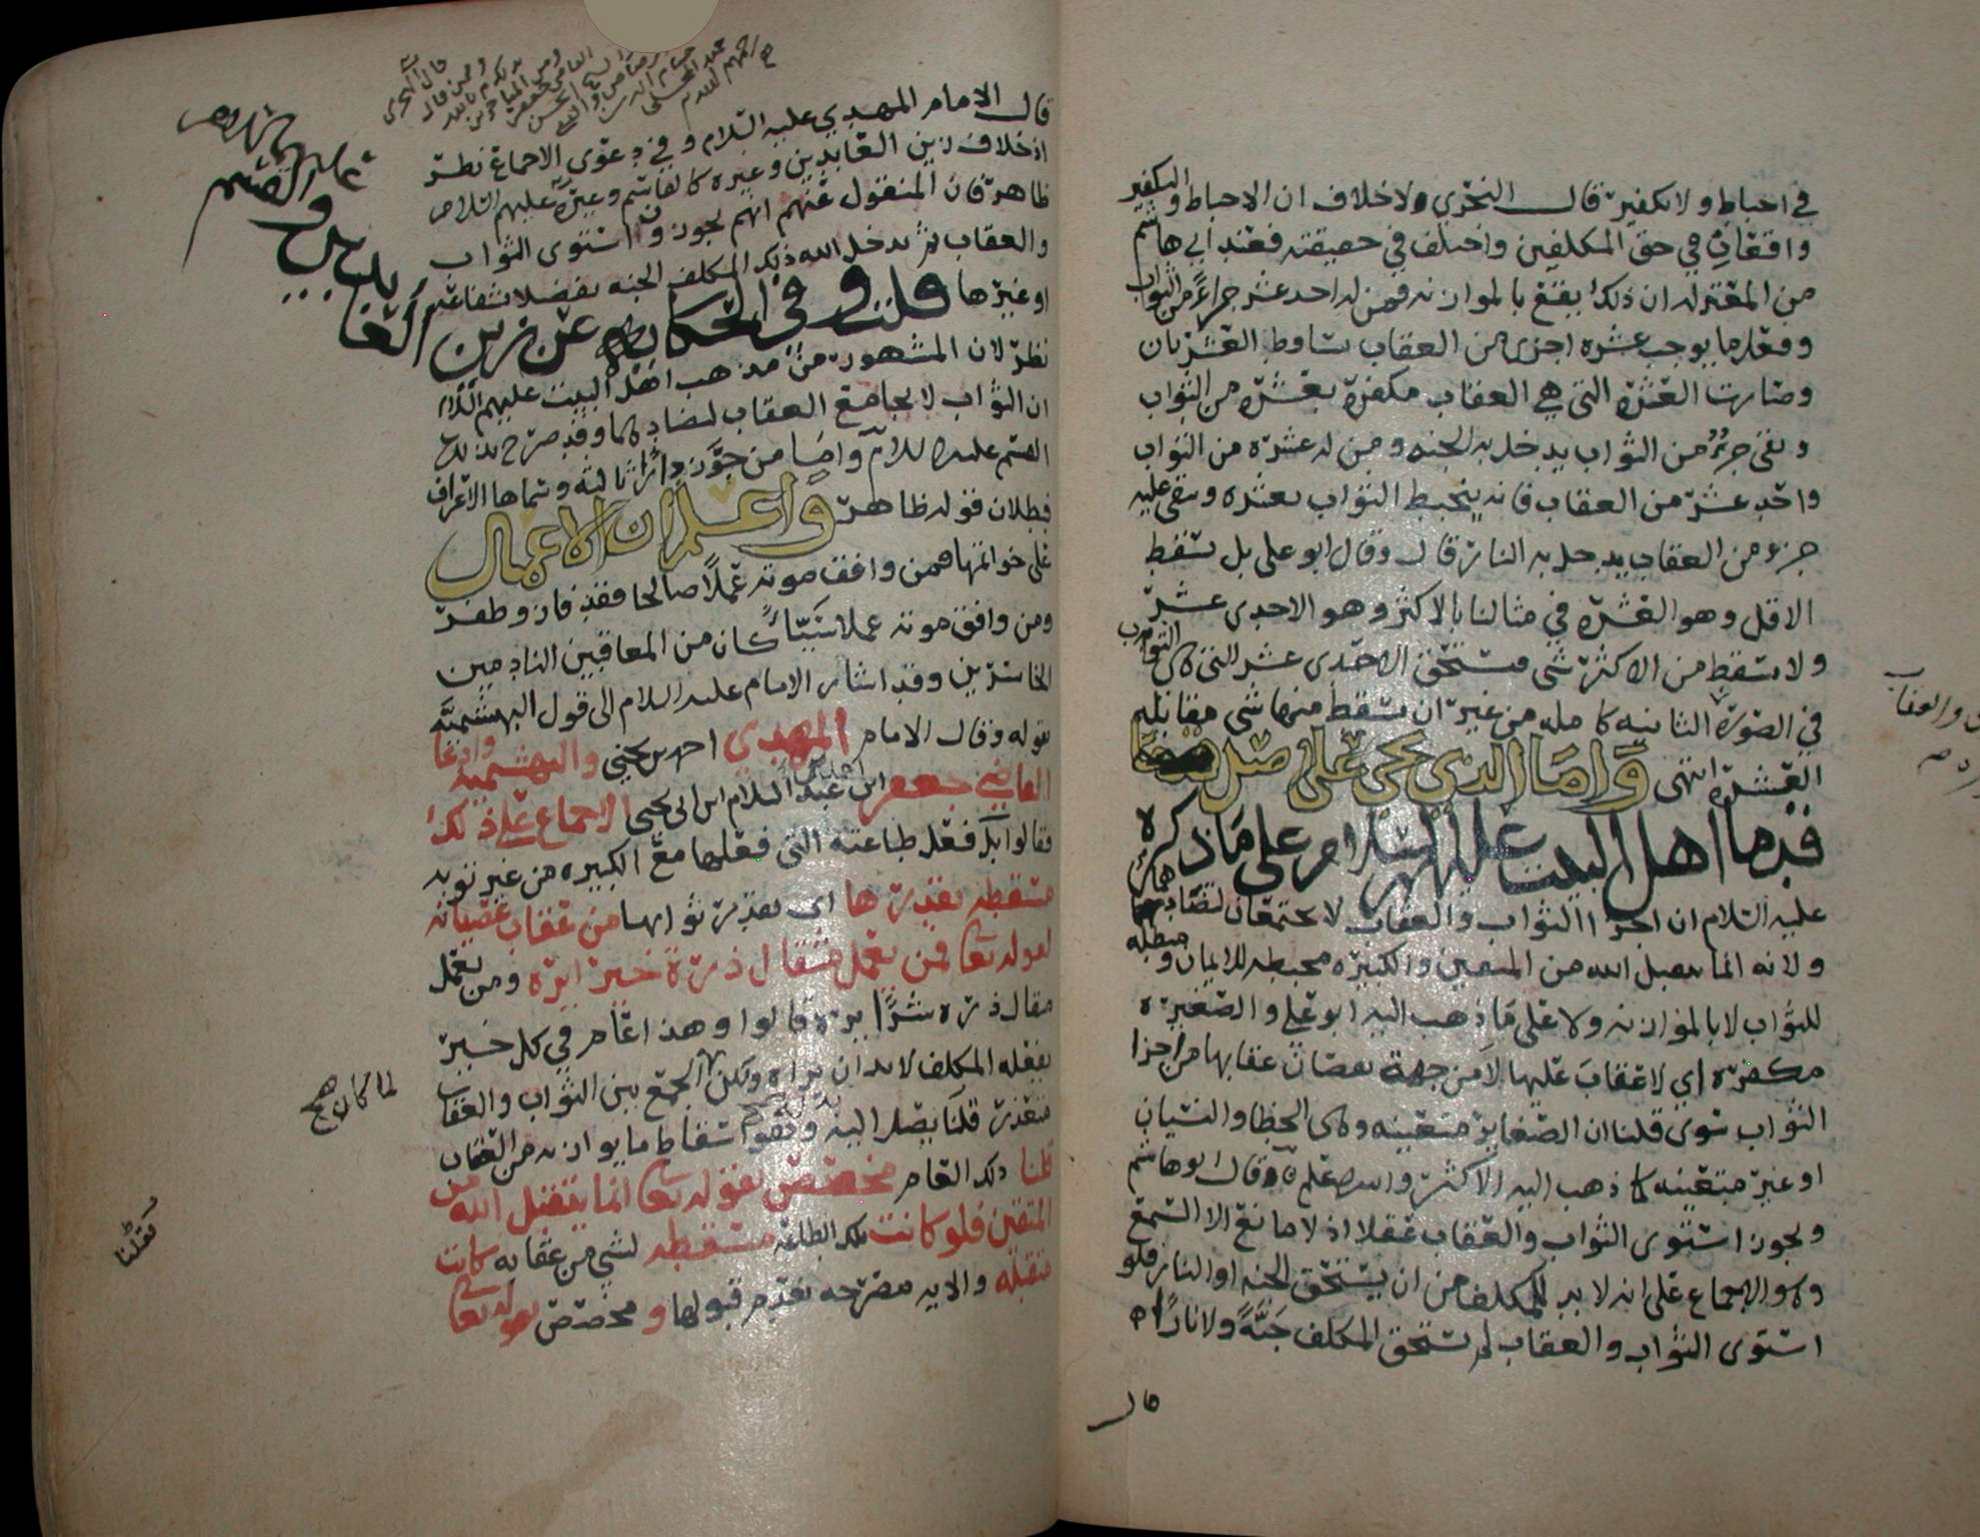 في احباط ولا تكفير قال النجري ولا خلاف ان الاحباط والتكفير
واقعان في حق المكلفين واختلف في حقيقته فعند ابي هاشم
من المعتزله ان ذلك يقع بالموازنه فمن له احد عشر جزاءً من الثواب
وفعل ما يوجب عشره اجزى من العقاب تساقط العشرتان
وصارت العشرة التي هي العقاب مكفرة بعشره من الثواب
وبقي جزءٌ من الثواب يدخل به الجنه ومن له عشره من الثواب
واحد عشر من العقاب فانه ينحبط الثواب بعشره وبقي عليه
جزء من العقاب يدخل به النار قال وقال ابو علي بل تسقط
الاقل وهو العشره في مثالنا بالاكثر وهو الاحدى عشر
ولا يسقط من الاكثر شي فيستحق الاحدى عشر التي هي الثواب
في الصورة الثانيه كامله من غير ان يسقط منها شي مقابله
العشرة انتهى واما الذي يجي على اصل
قدما اهل البيت عليهم السلام على ما ذكره
عليه السلام ان اجزا الثواب والعقاب لا يجتمعان لتضادهما
ولانه انما يتقبل الله من المتقين والكبيره محبطه للايمان ومبطله
للثواب لا بالموازنه ولا على ما ذهب اليه ابو علي والصغيره
مكفره اي لا عقاب عليها لا من جهة نقصان عقابها من اجزا
الثواب سوى قلنا ان الصغاير متعينه وهي الخطا والنسيان
او غير متعينه كما ذهب اليه الاكثر والله اعلم وقال ابو هاشم
ويجوز استوى الثواب والعقاب عقلا اذ لا مانع الا السمع
وهو الاجماع على انه لا بد للمكلف من ان يستحق الجنه او النار فلو
استوى الثواب والعقاب لم يستحق المكلف جنةً ولا ناراً
قال
قال الامام المهدي عليه السلام وفي دعوى الاجماع نظر
اذ خلاف زين العابدين وغيره كالقاسم وغيره عليهم السلام
ظاهر فان المنقول عنهم انهم يجوزون استوى الثواب
والعقاب ثم يدخل الله ذلك المكلف الجنه تفضلا بشفاعه
او غيرها قلت وفي الحكايه عن زين العابدين والقسم عليهم السلام
نظر لان المشهور من مذهب اهل البيت عليهم السلام
ان الثواب لا يجامع العقاب لتضادهما وقد صرح بذلك
القسم عليه السلام واما من جوز داراً ثالثه وسماها الاعراف
فبطلان قوله ظاهر واعلم ان الاعمال
على خواتمها فمن وافق موته عملاً صالحا فقد فاز وظفر
ومن وافق موته عملا سيّئاً كان من المعاقبين النادمين
الخاسرين وقد اشار الامام عليه السلام الى قول البهشميه
بقوله وقال الامام المهدي احمد بن يحيى والبهشميه وادعا
القاضي جعفر ابن احمد بن عبد السلام ابن ابي يحيى الاجماع على ذلك
فقالوا بل فعل طاعته التي فعلها مع الكبيره من غير توبه
مسقطه بقدرها اي بقدر ثوابها من عقاب عصيانه
لقوله تعا فمن يعمل مثقال ذرة خيرا يره ومن يعمل
مثقال ذره شرًّا يره قالوا وهذا عام في كل خير
يفعله المكلف لا بد ان يراه ولكن لما كان الجمع بين الثواب والعقاب
متعذر قلنا بصل اليه وهو اسقاط ما يوازنه من العقاب
قلنا ذلك العام مخصص بقوله تعا انما يتقبل الله من
المتقين فلو كانت تلك الطاعه مسقطه لشي من عقابه كانت
متقبله والايه مصرحه بعدم قبولها ومخصص بقوله تعا
لما كان صح
فقلنا